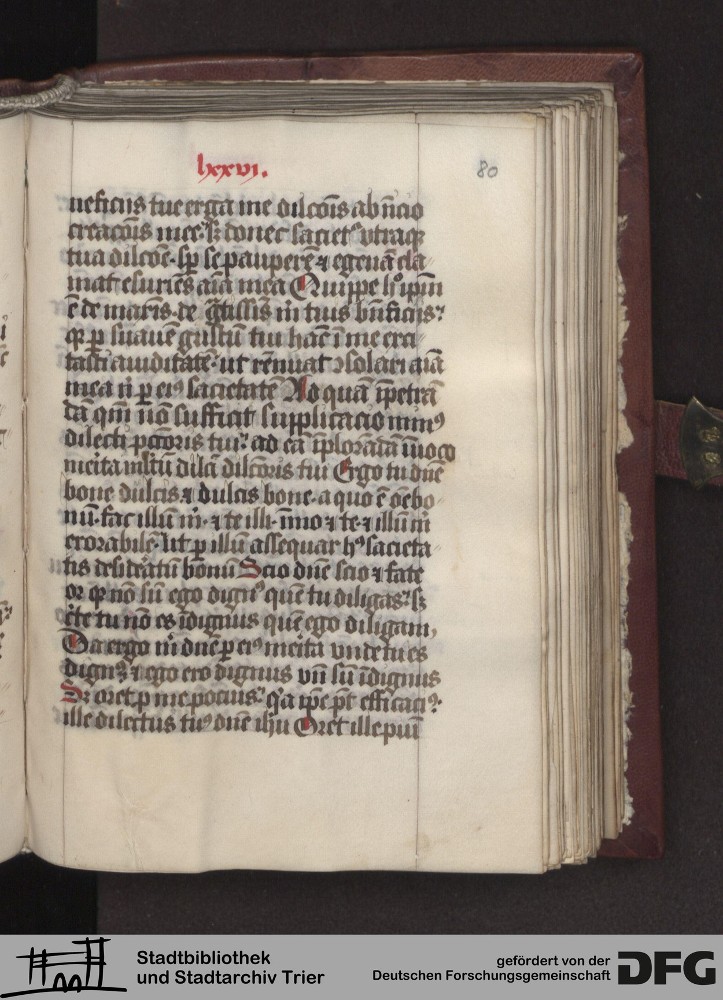 lxxvi.
80
neficijs tue erga me dilcōis ab īnicio
creacōis mee. sꝫ donec saciet᷒ vtraqꝫ
tua dilcōe. sp̄ se pauperē ⁊ egenā cla
mat esuriēs aīa mea Quippe h᷒ ip̄m
ē de maxīs. de g̃tissīs m̄ tuis bn̄ficijs.
qꝫ ꝑ suauē gustum tui hāc ī me exci
tasti auiditatē. ut rēnuat ɔsolari aīā
mea nͥ ꝑ eiꝰ sacietatē Ad quā īpetrā
dā qm̄ nō sufficit supplicacio min᷒
dilecti pctōris tui. ad eā īplorādā īuoco
meita dilcōris tui Ergo tu dn̄e
bone dulcis ⁊ dulcis bone. a quo ē oē bo
nū. fac illū m̄. ⁊ te illi. īmo ⁊ te ⁊ illū m̄
exorabilē. Ut ꝑ illū assequar hꝰ sacieta
tis desideātū bonū Scio dn̄e scio ⁊ fate
or qꝫ nō sū ego dignꝰ quē tu diligas. sꝫ
c̄te tu nō es īdignus quē ego diligam,
Da ergo m̄ dn̄e ꝑ eiꝰ meita vnde tu es
dignꝰ ⁊ ego ero dignus vn̄ sū īdignus
Sꝫ oret ꝓ me pocius. q̇a ip̄e pt̄ efficaciꝰ.
ille dilectus tuꝰ dn̄e ihu Oret ille piū
Stadtbibliothek
und Stadtarchiv Trier
gefördert von der
Deutschen Forschungsgemeinschaft
DFG